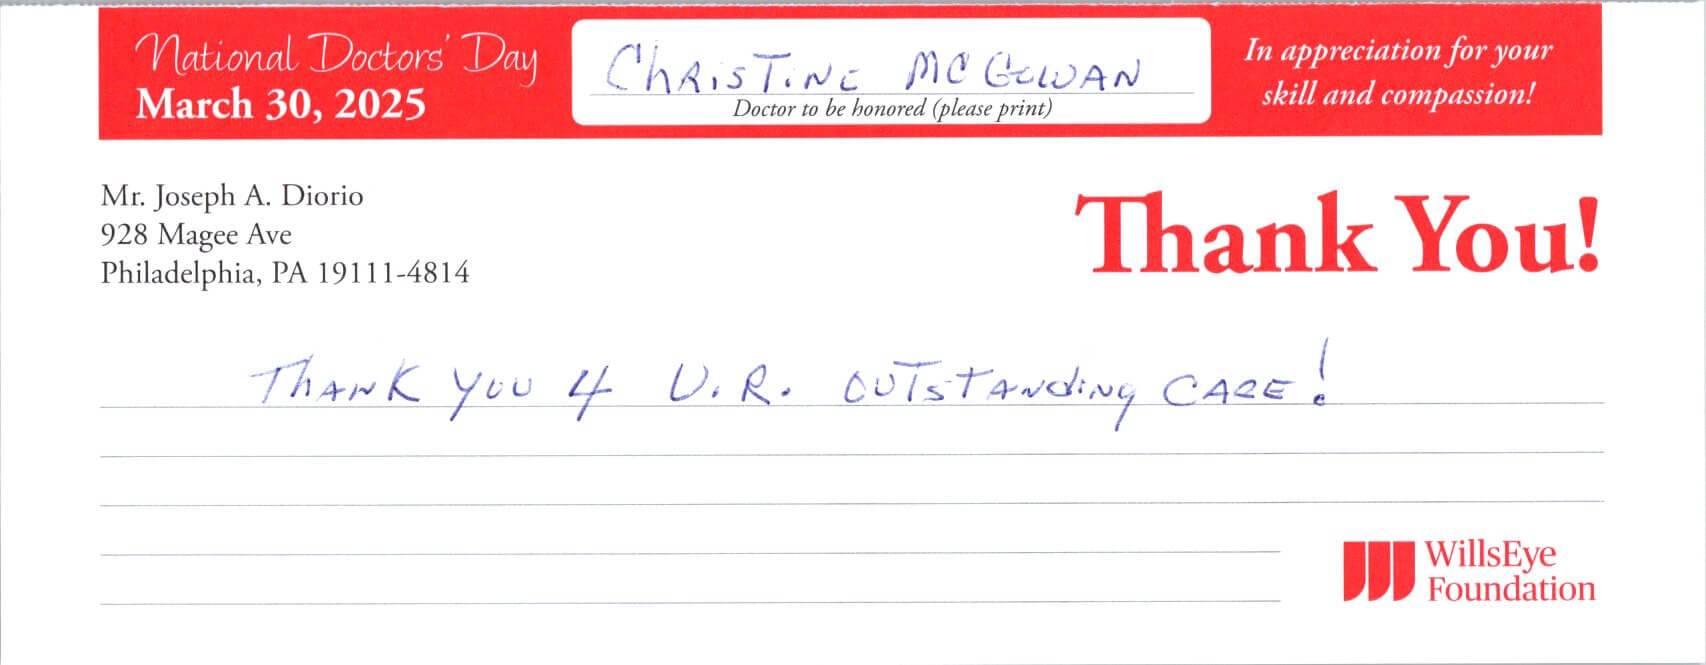 National Doctors' Day
March 30, 2025
CHRISTINE MCGOWAN
Doctor to be honored (please print)
In appreciation for your
skill and compassion!
Mr. Joseph A. Diorio
928 Magee Ave
Philadelphia, PA 19111-4814
Thank You!
THANK YOU 4 U.R. OUTSTANDING CARE!
WillsEye
Foundation